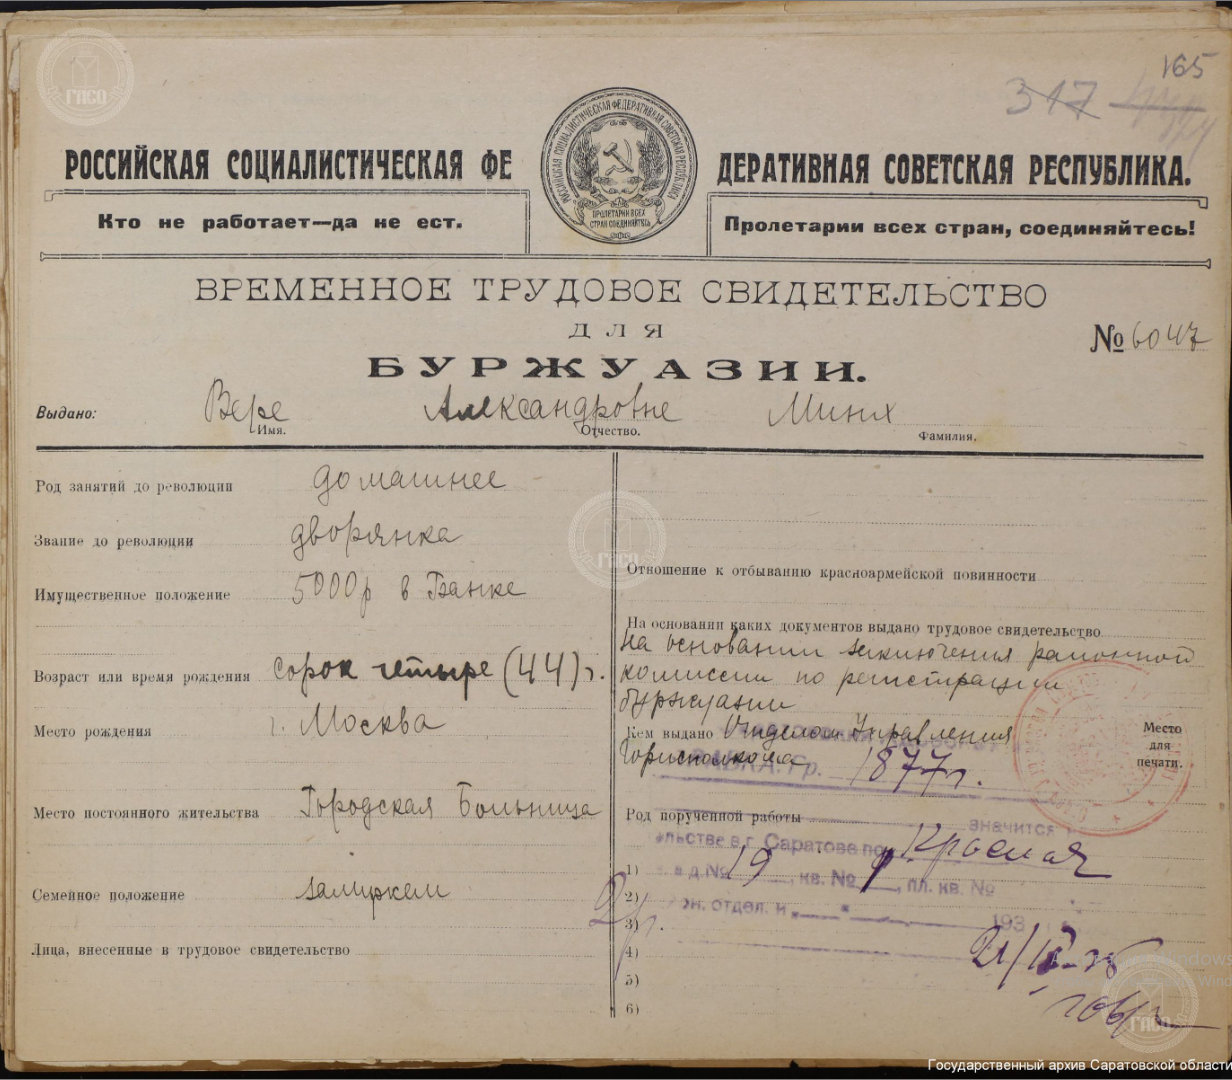 165
317
РОССИЙСКАЯ СОЦИАЛИСТИЧЕСКАЯ ФЕДЕРАТИВНАЯ СОВЕТСКАЯ РЕСПУБЛИКА.
РОССИЙСКАЯ СОЦИАЛИСТИЧЕСКАЯ ФЕДЕРАТИВНАЯ СОВЕТСКАЯ РЕСПУБЛИКА
ПРОЛЕТАРИИ ВСЕХ
СТРАН СОЕДИНЯЙТЕСЬ
Кто не работает—да не ест.
Пролетарии всех стран, соединяйтесь!
ВРЕМЕННОЕ ТРУДОВОЕ СВИДЕТЕЛЬСТВО
ДЛЯ
№ 6047
БУРЖУАЗИИ.
Выдано: Вере Александровне Миних
Имя. Отчество. Фамилия.
Род занятий до революции домашнее
Звание до революции дворянка
Имущественное положение 5000р в Банке
Возраст или время рождения сорок четыре (44) г.
Место рождения г. Москва
Место постоянного жительства Городская Больница
Семейное положение замужем
Лица, внесенные в трудовое свидетельство
Отношение к отбыванию красноармейской повинности
На основании каких документов выдано трудовое свидетельство
На основании заключения районной
комиссии по регистрации
буржуазии
Кем выдано Отделом Управления
Горисполкома
Место
для
печати.
СПРАВКА. Гр. 1877г.
Род порученной работы
значится
в г. Саратове по Красная
д. № 19, кв. № 1, пл. кв. №
отдел. и 193
1)
2)
3)
4)
5)
6)
ГАСО
ГАСО
ГАСО
Государственный архив Саратовской области